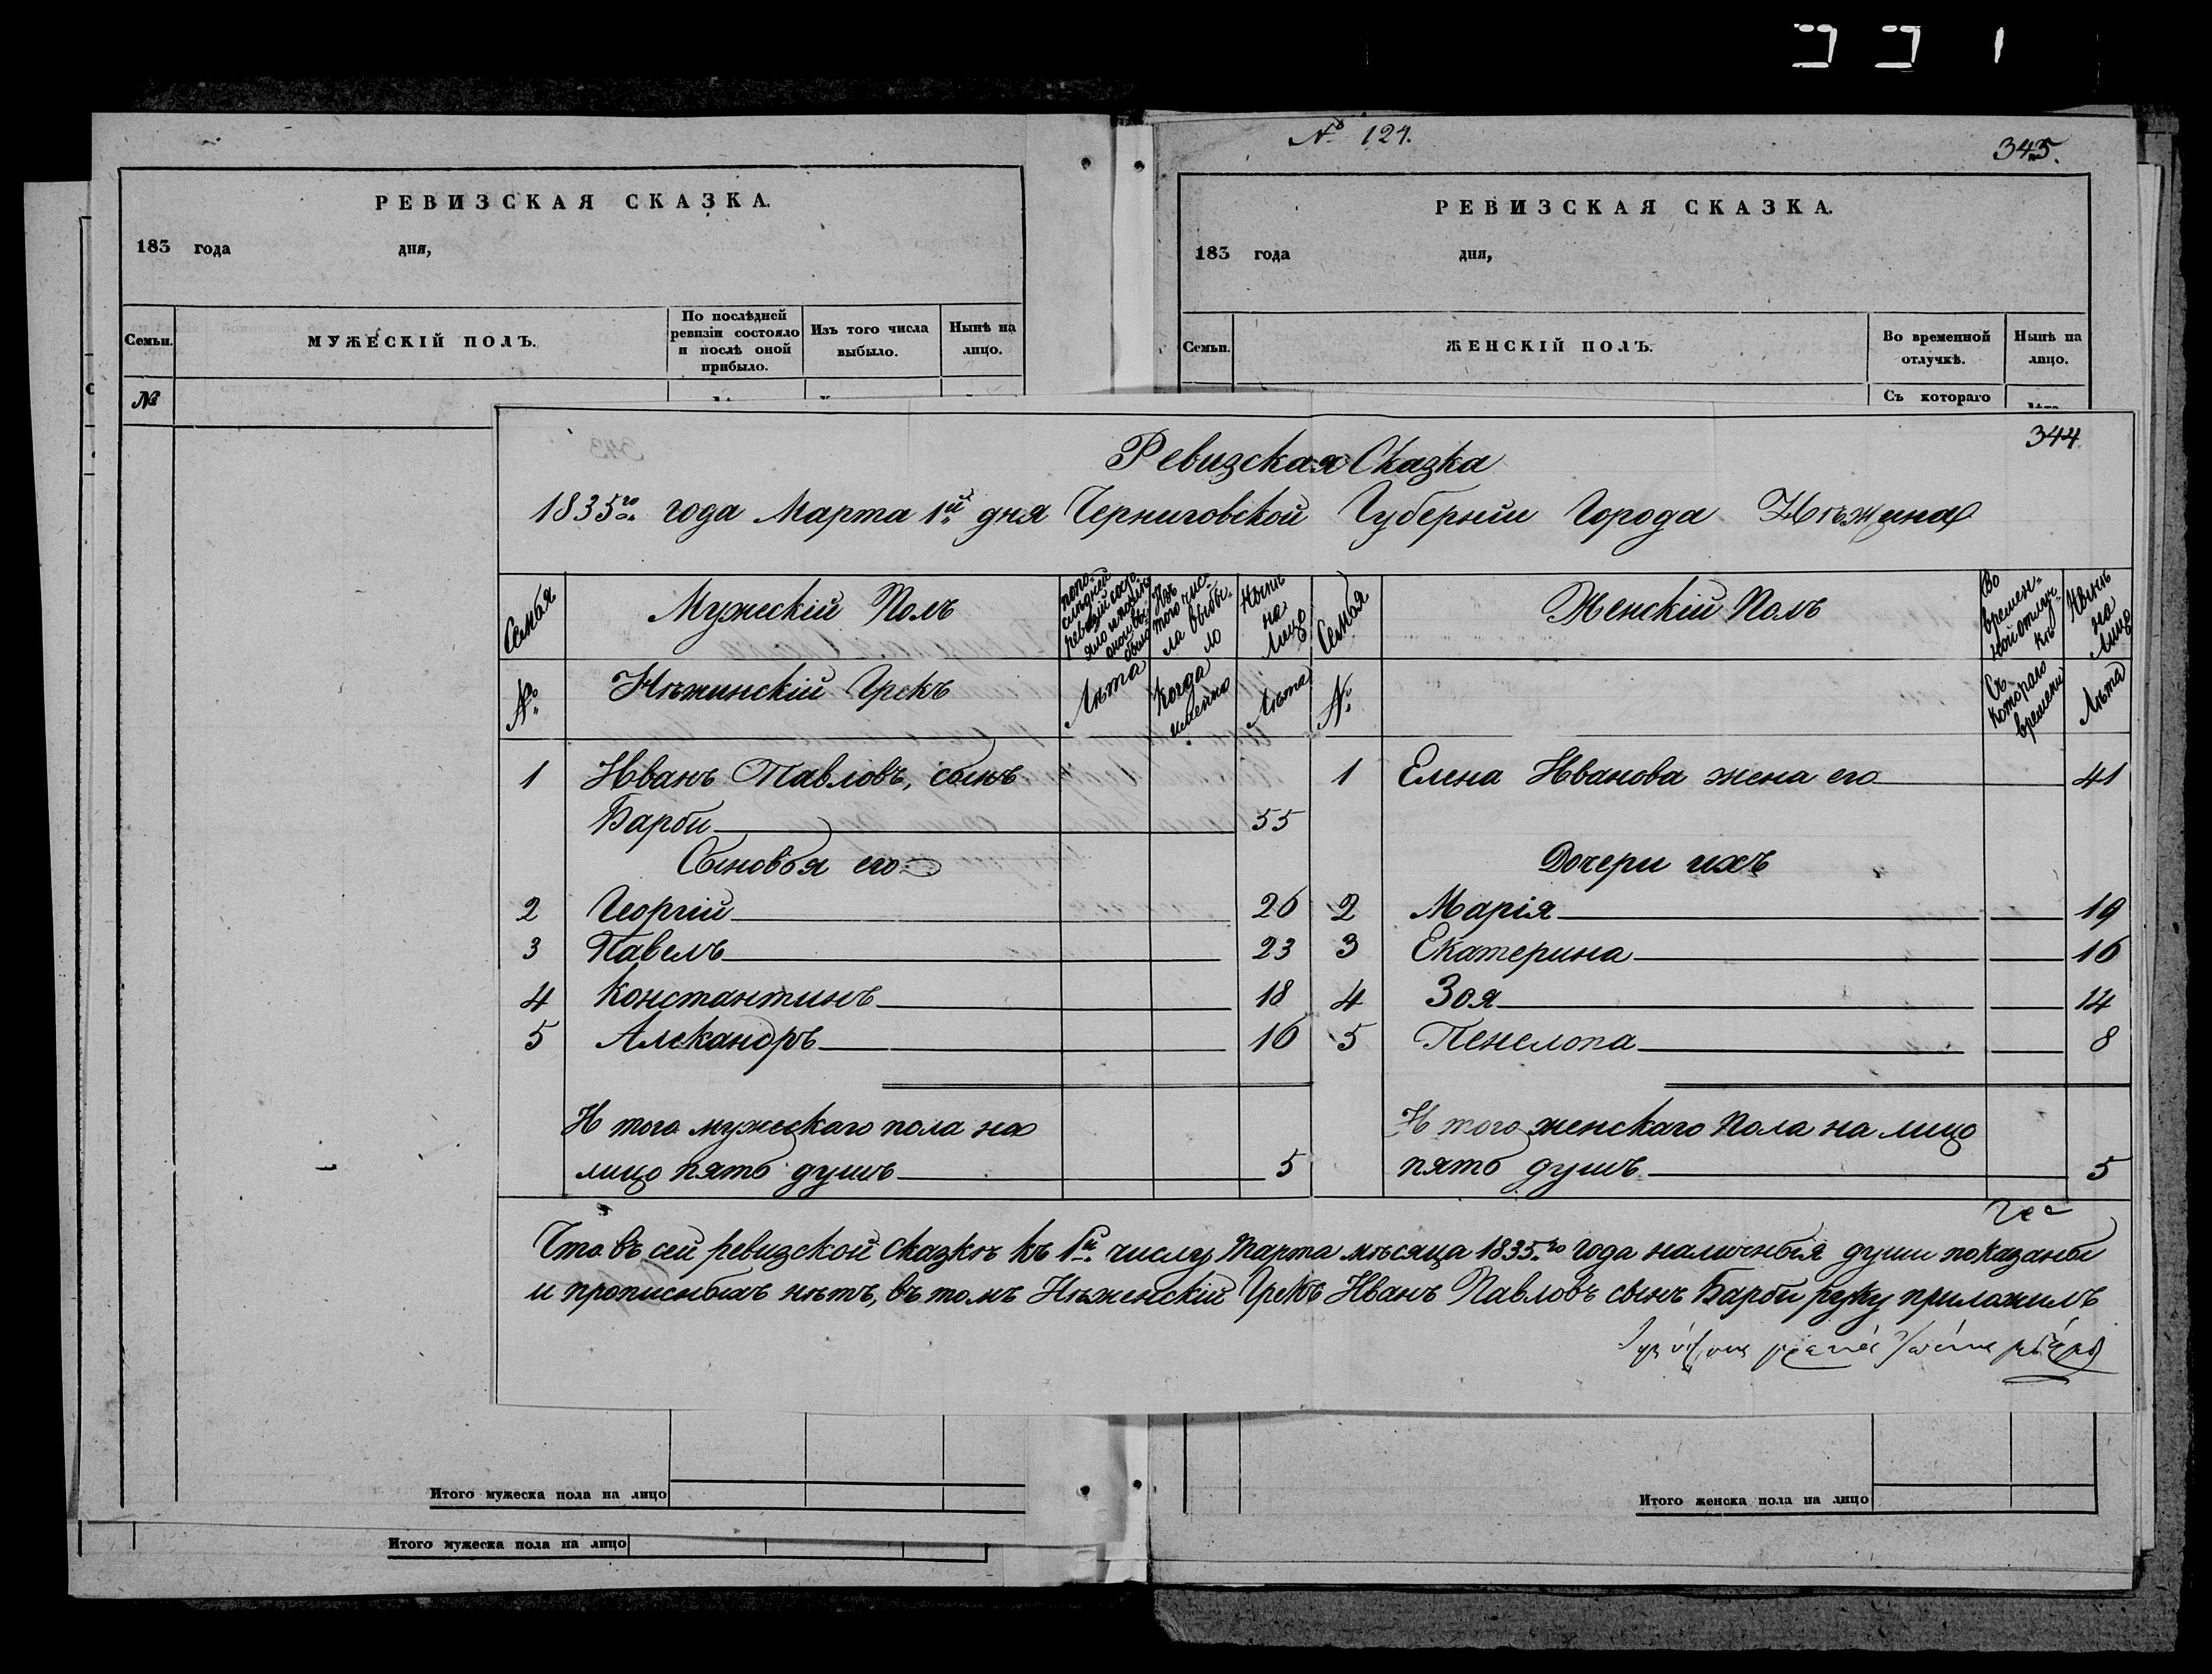 РЕВИЗСКАЯ СКАЗКА.
183 года дня,
Семьи.
МУЖЕСКІЙ ПОЛЪ.
По послѣдней ревизіи состояло и послѣ оной прибыло.
Изъ того числа выбыло.
Нынѣ на лицо.
№
№ 124.
345.
РЕВИЗСКАЯ СКАЗКА.
183 года дня,
Семьи.
ЖЕНСКІЙ ПОЛЪ.
Во временной отлучкѣ.
Нынѣ на лицо.
Съ котораго
344
Ревизская Сказка
1835го года Марта 1й дня Черниговской Губерніи Города Нѣжина
Семья
Мужескій Полъ
Изъ того числа выбыло
Нынѣ на Лицо
Семья
Женскій Полъ
Во временной отлучкѣ
Нынѣ на Лицо
№
Нѣжинскій Грекъ
Лѣта
Когда имянно
Лѣта
№
Съ котораго времени
Лѣта
1 Иванъ Павловъ, сынъ
Барби 55
Сыновья его
2 Георгій 26
3 Павелъ 23
4 Константинъ 18
5 Алекандръ 16
И того мужескаго пола на
лицо пять душъ 5
1 Елена Иванова жена его 41
Дочери ихъ
2 Марія 19
3 Екатерина 16
4 Зоя 14
5 Пенелопа 8
И того женскаго Пола на лицо
пять душъ 5
Что въ сей ревизской Сказкѣ къ 1й числу Марта мѣсяца 1835го года наличныя души показаны
и прописныхъ нѣтъ, въ томъ Нѣженскій Грекъ Иванъ Павловъ сынъ Барби руку приложилъ
Итого мужеска пола на лицо
Итого мужеска пола на лицо
Итого женска пола на лицо